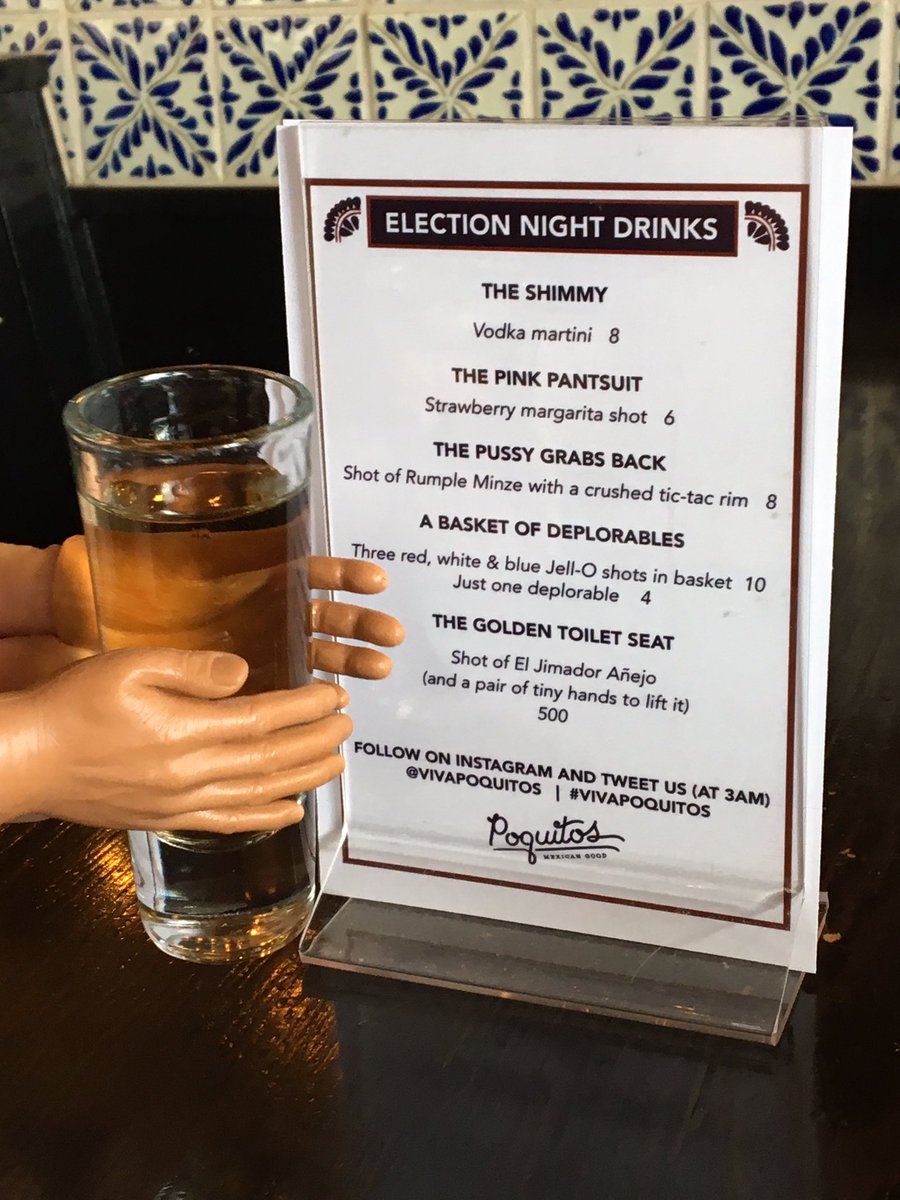 ELECTION NIGHT DRINKS
THE SHIMMY
Vodka martini 8
THE PINK PANTSUIT
Strawberry margarita shot 6
THE PUSSY GRABS BACK
Shot of Rumple Minze with a crushed tic-tac rim 8
A BASKET OF DEPLORABLES
Three red, white & blue Jell-O shots in basket 10
Just one deplorable 4
THE GOLDEN TOILET SEAT
Shot of El Jimador Añejo
(and a pair of tiny hands to lift it)
500
FOLLOW ON INSTAGRAM AND TWEET US (AT 3AM)
@VIVAPOQUITOS | #VIVAPOQUITOS
Poquitos
MEXICAN GOOD